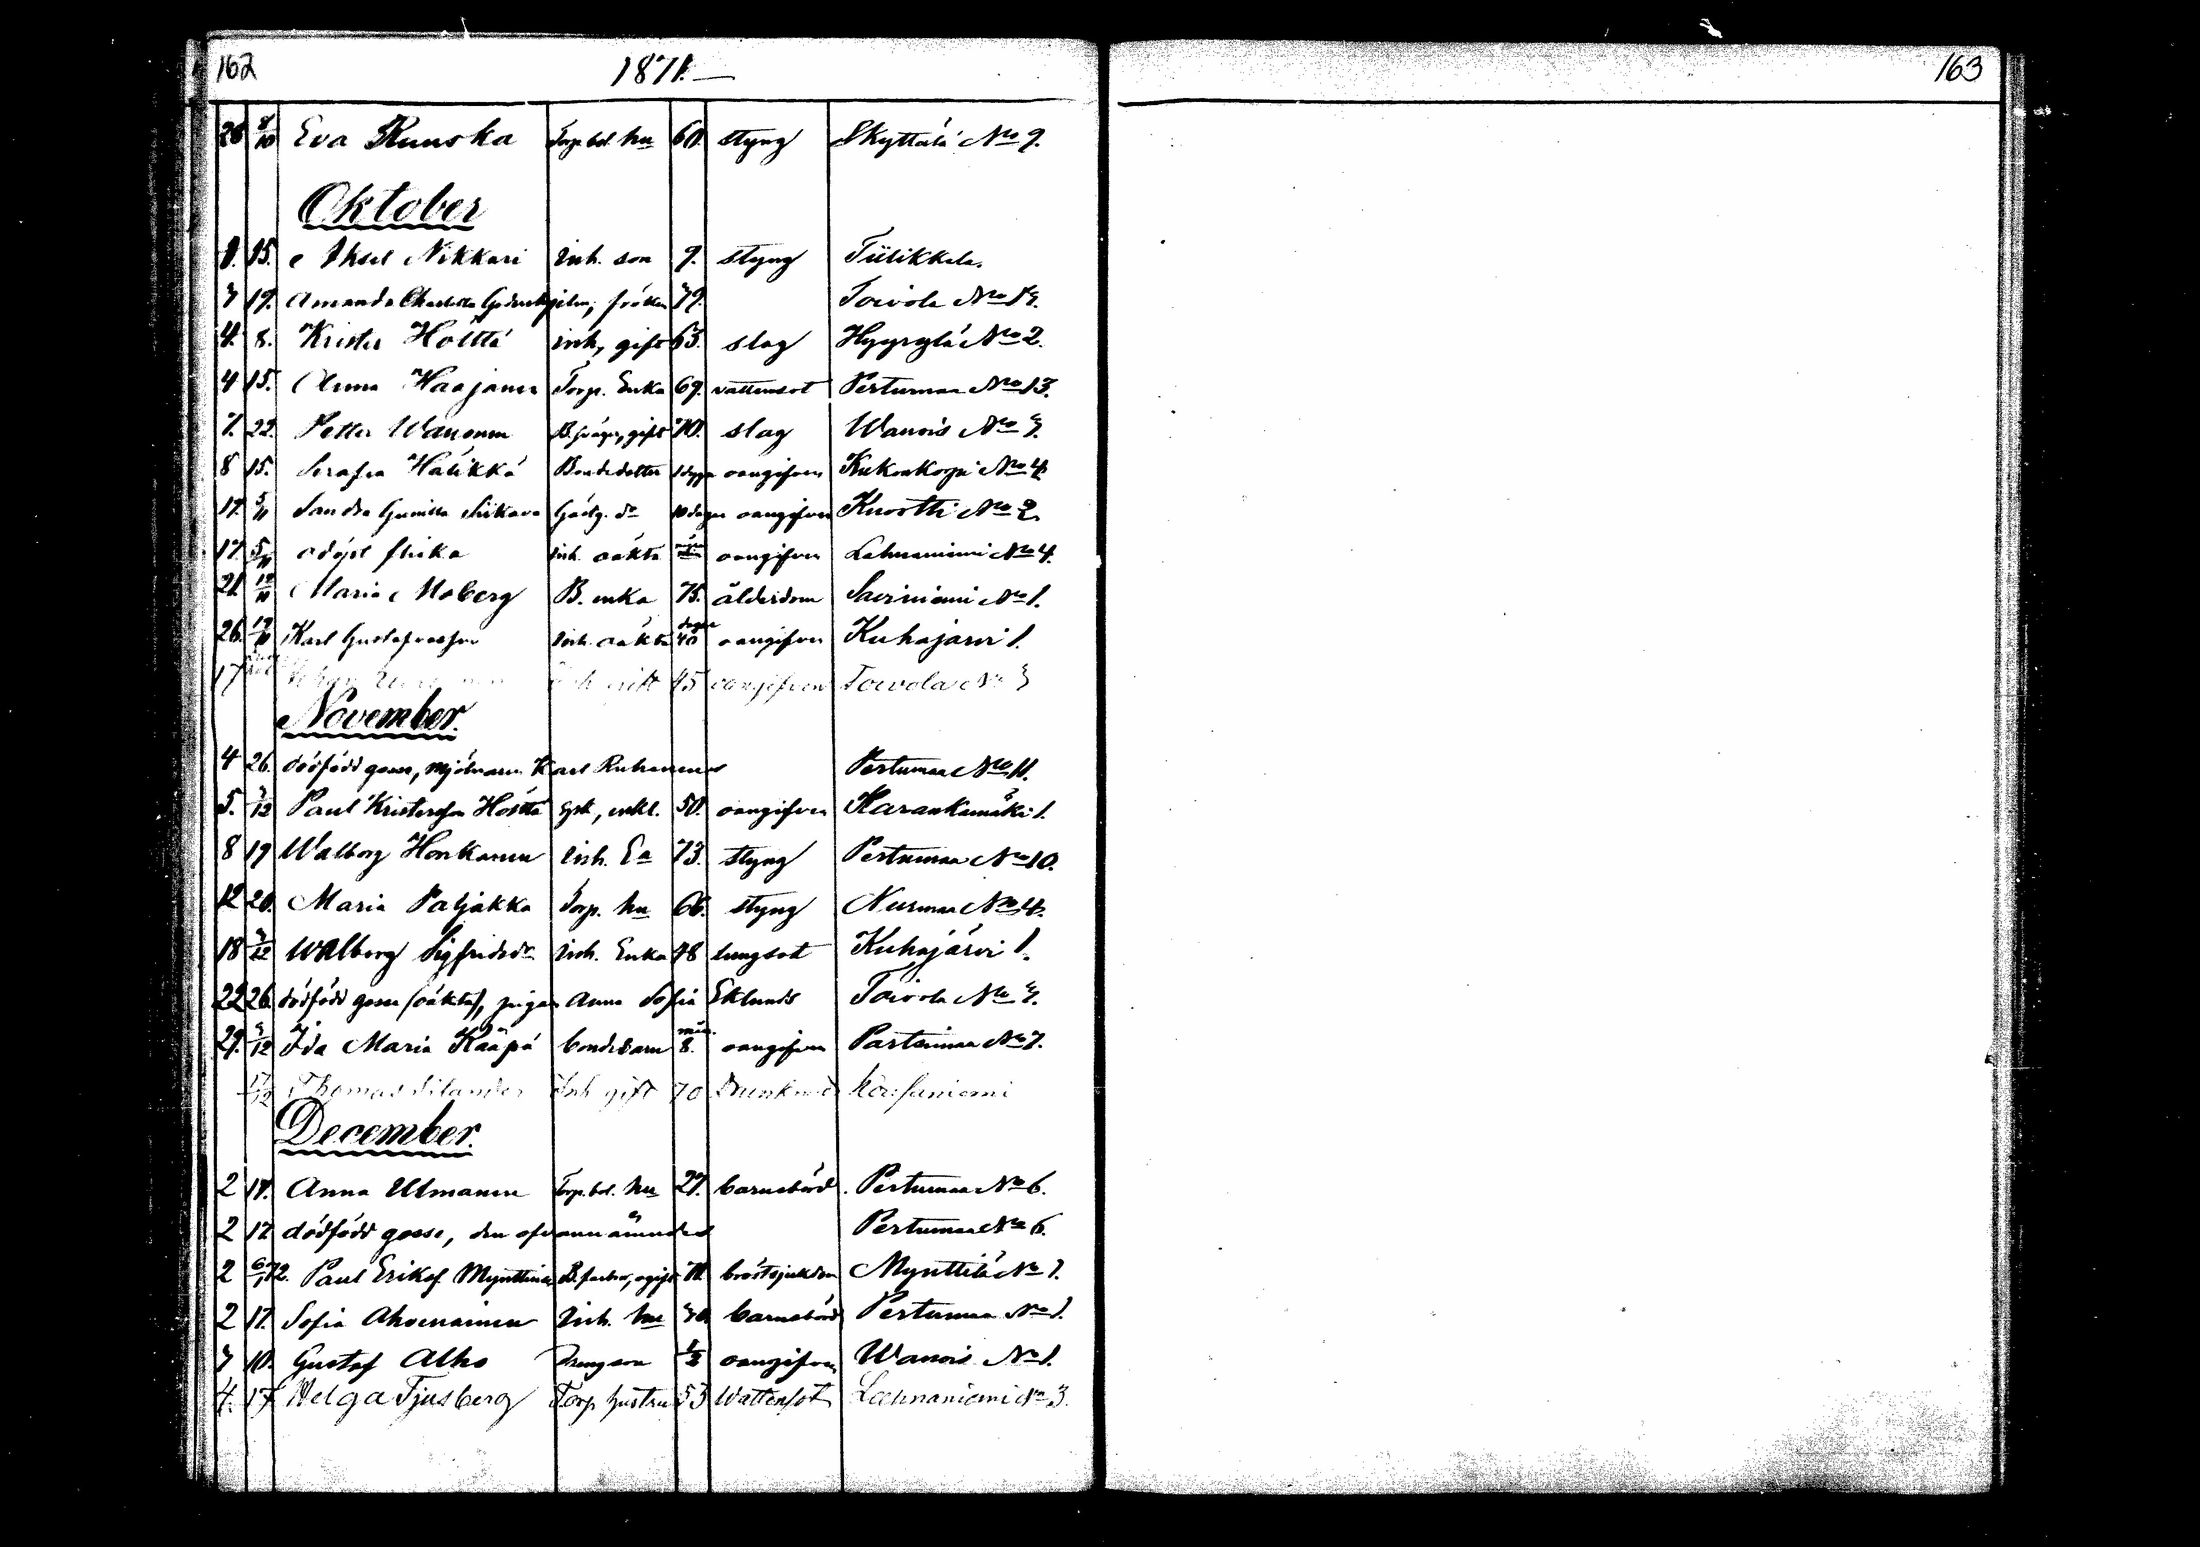 162
1871.
163
26 8/10 Eva Ruuska Torp.bol. hu 60. styng Skyttälä No 9.
Oktober
1. 15. Aksel Nikkari inh. son 9. styng Tiilikkala.
3 19. Amanda Charlotta fröken 79. Toivola No
4. 8. Krister Hölttä inh, gift 63. slag Hyyrylä No 2.
4 15. Anna Haajanen Torp. Enka 69. vattensot Pertumaa No 13.
7. 22. Petter Wanonen gift 70. slag Wanois No 3.
8 15. Serafia Hälikkä Bondedotter oangifven Kukonkorpi No 4
17. 5/11 Sandra Gunilla dr 10 dagar oangifven Kuortti No 2.
17. 5/11 odöpt flicka inh. oäkta oangifven Lahnaniemi No 4.
21. 12/11 Maria Moberg B. enka 75. ålderdom No 1.
26. 12/11 Karl Gustafsson inh. oäkta dagar 40 oangifven Kuhajärvi 1.
17 gift 45 oangifven Toivola No 3
November.
4 26. dödfödd gosse, mjölnaren Karl Ruhanens Pertumaa No 11.
5. 3/12 Paul Kristersson Hölttä enkl. 50. oangifven Karankamäki 1.
8 19 Walborg Honkanen inh. Ea 73. styng Pertumaa No 10.
12 20. Maria Paljakka Torp. hu 66. styng Nurmaa No 4.
18 3/12 Walborg Sigfridsdr inh. Enka 48 lungsot Kuhajärvi 1.
22 26. dödfödd gosse (oäkta), pigan Anna Sofia Eklunds Toivola No 3.
29. 3/12 Ida Maria Kääpä bondebarn mån. 8. oangifven Partaimaa No 7.
17/12 Thomas Silander Inh gift 70
December.
2 17. Anna Ulmanen Torp.bol. hu 27. barnsbörd. Pertumaa No 6.
2 17. dödfödd gosse, den ofvannämndes Pertumaa No 6.
2 6/1 72. Paul Eriksf Mynttinen B. farbro, ogift 71. bröstsjukdom Mynttilä No 1.
2 17. Sofia Ahvenainen Inh. hu 30. barnsbörd Pertumaa No 1.
3 10. Gustaf Alho Drängson 1/2 oangifven Wanois No 1.
4. 17 Helga Tjusberg Torp hustru 53 Wattensot Lahnaniemi No 3.